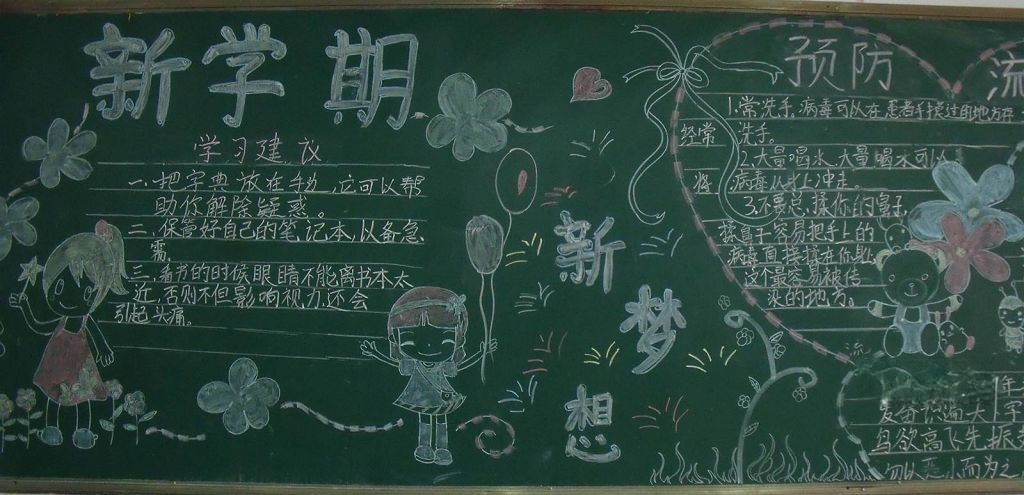 新学期
学习建议
一.把字典放在手边,它可以帮
助你解除疑惑。
二.保管好自己的笔记本,以备急
需。
三.看书的时候眼睛不能离书本太
近,否则不但影响视力,还会
引起头痛。
新
梦
想
预防流
1.常洗手.病毒可以在患者手摸过的地方存
经常洗手。
2.大量喝水.大量喝水可以
将病毒从
冲走。
3.不要总揉你的鼻子.
揉鼻子容易把手上的
病毒直接揉在你
这个最容易被传
染的地方。
流
年
大字
鸟欲高飞先振
勿以恶小而为之